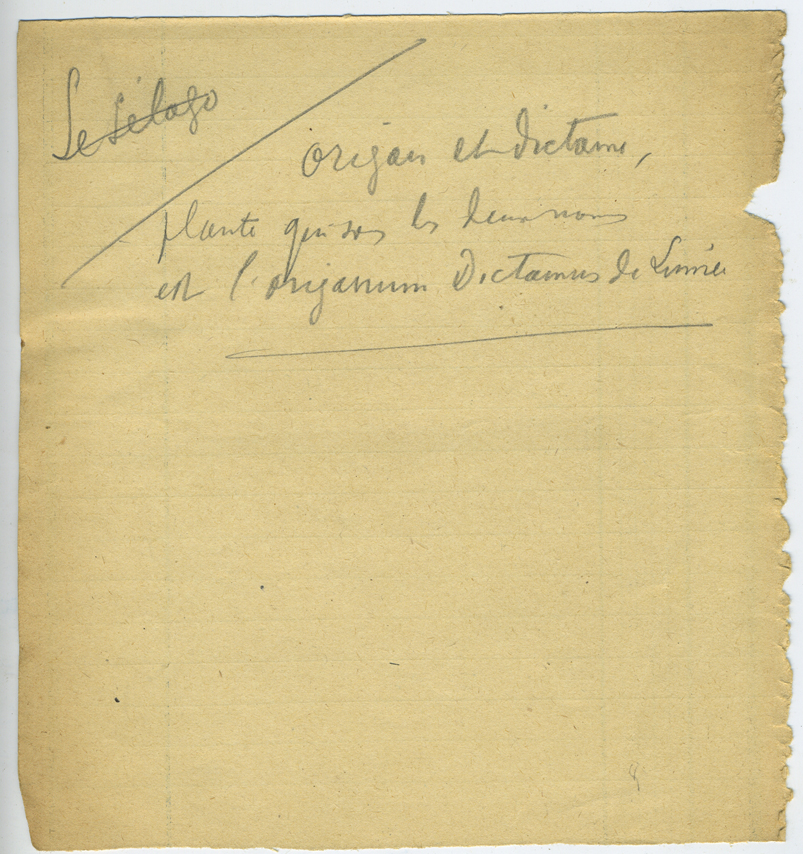 Le Sélago
origan et dictame,
plante qui sous les deux noms
est l'origanum Dictamus de Linnée